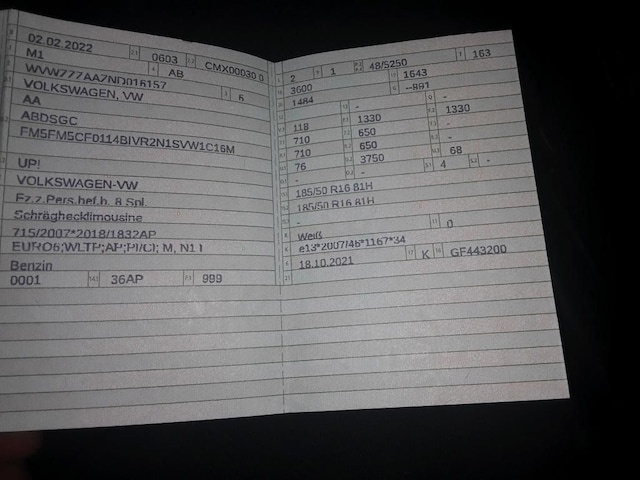 02.02.2022 0603 CMX00030 0
M1 AB
WVWZZZAAZND016157 5
VOLKSWAGEN, VW
AA
ABDSGC
FM5FM5CF0114BIVR2N1SVW1C16M
UP!
VOLKSWAGEN-VW
Fz.z.Pers.bef.b. 8 Spl.
Schräghecklimousine
715/2007*2018/1832AP
EURO6;WLTP;AP;PI/CI; M, N1 I
Benzin
0001 36AP 999
2 1 48/5250 163
3600 1643
1484 --891
- -
118 1330 1330
710 650 -
710 650 -
76 3750 68
- - 4 -
185/50 R16 81H
185/50 R16 81H
-
Weiß 0
e13*2007/46*1167*34
18.10.2021 K GF443200